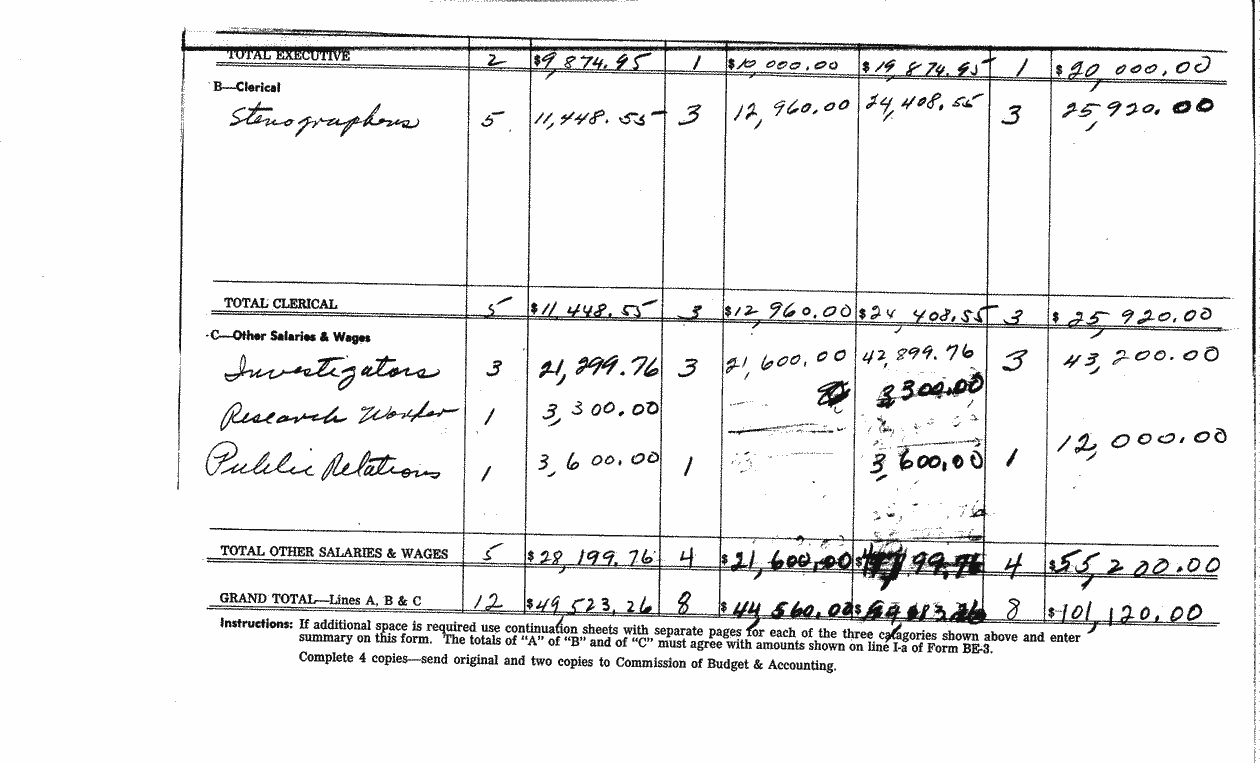 TOTAL EXECUTIVE 2 $9,874.95 1 $10,000.00 $19,874.95 1 $20,000.00
B—Clerical
Stenographers 5 11,448.55 3 12,960.00 24,408.55 3 25,920.00
TOTAL CLERICAL 5 $11,448.55 3 $12,960.00 $24,408.55 3 $25,920.00
C—Other Salaries & Wages
Investigators 3 21,299.76 3 21,600.00 42,899.76 3 43,200.00
Research Worker 1 3,300.00 3300.00
Public Relations 1 3,600.00 1 3,600.00 1 12,000.00
TOTAL OTHER SALARIES & WAGES 5 $28,199.76 4 $21,600.00 4 $55,200.00
GRAND TOTAL—Lines A, B & C 12 $49,523.26 8 $44,560.00 8 $101,120.00
Instructions: If additional space is required use continuation sheets with separate pages for each of the three catagories shown above and enter
summary on this form. The totals of "A" of "B" and of "C" must agree with amounts shown on line I-a of Form BE-3.
Complete 4 copies—send original and two copies to Commission of Budget & Accounting.